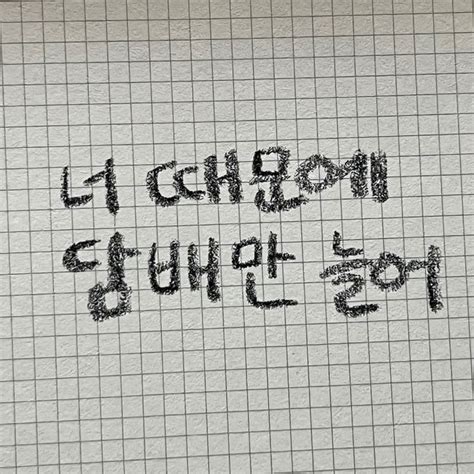 너 때문에
담배만 늘어